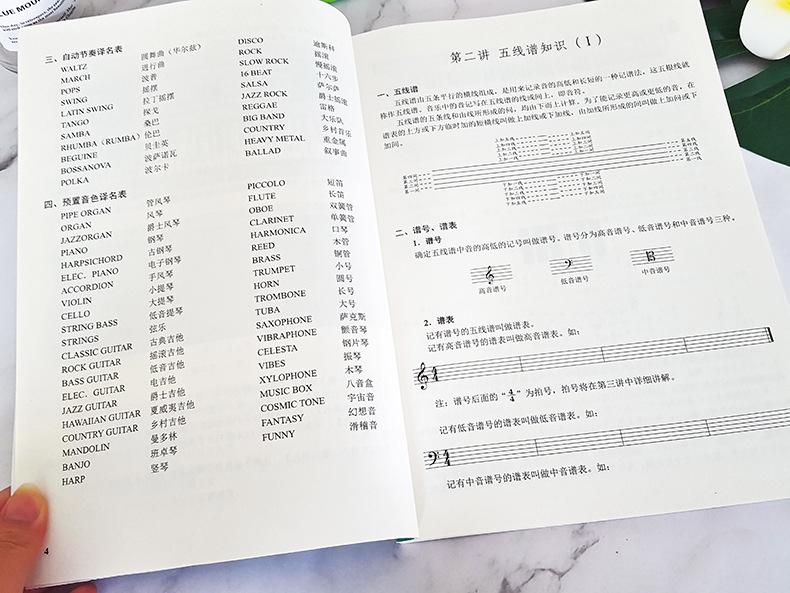 BLUE MOUN
三、自动节奏译名表
WALTZ 圆舞曲（华尔兹）
MARCH 进行曲
POPS 波普
SWING 摇摆
LATIN SWING 拉丁摇摆
TANGO 探戈
SAMBA 桑巴
RHUMBA (RUMBA) 伦巴
BEGUINE 贝圭英
BOSSANOVA 波萨诺瓦
POLKA 波尔卡
DISCO 迪斯科
ROCK 摇滚
SLOW ROCK 慢摇滚
16 BEAT 十六步
SALSA 萨尔萨
JAZZ ROCK 爵士摇滚
REGGAE 雷格
BIG BAND 大乐队
COUNTRY 乡村音乐
HEAVY METAL 重金属
BALLAD 叙事曲
四、预置音色译名表
PIPE ORGAN 管风琴
ORGAN 风琴
JAZZORGAN 爵士风琴
PIANO 钢琴
HARPSICHORD 古钢琴
ELEC. PIANO 电子钢琴
ACCORDION 手风琴
VIOLIN 小提琴
CELLO 大提琴
STRING BASS 低音提琴
STRINGS 弦乐
CLASSIC GUITAR 古典吉他
ROCK GUITAR 摇滚吉他
BASS GUITAR 低音吉他
ELEC. GUITAR 电吉他
JAZZ GUITAR 爵士吉他
HAWAIIAN GUITAR 夏威夷吉他
COUNTRY GUITAR 乡村吉他
MANDOLIN 曼多林
BANJO 班卓琴
HARP 竖琴
PICCOLO 短笛
FLUTE 长笛
OBOE 双簧管
CLARINET 单簧管
HARMONICA 口琴
REED 木管
BRASS 铜管
TRUMPET 小号
HORN 圆号
TROMBONE 长号
TUBA 大号
SAXOPHONE 萨克斯
VIBRAPHONE 颤音琴
CELESTA 钢片琴
VIBES 振琴
XYLOPHONE 木琴
MUSIC BOX 八音盒
COSMIC TONE 宇宙音
FANTASY 幻想音
FUNNY 滑稽音
4
第二讲 五线谱知识（Ⅰ）
一、五线谱
五线谱由五条平行的横线组成，是用来记录音的高低和长短的一种记谱法，这五根线就
称作五线谱。音乐中的音记写在五线谱的线或间上，即音符。
五线谱的五条线和由线所形成的间，均由下而上计算。为了能记录更高或更低的音，在
谱表的上方或下方临时加的短横线叫做上加线或下加线，由加线所形成的间叫做上加间或下
加间。
上加三线
上加二线
上加一线
上加三间
上加二间
上加一间
第四间
第三间
第二间
第一间
第五线
第四线
第三线
第二线
第一线
下加一线
下加二线
下加三线
下加一间
下加二间
下加三间
二、谱号、谱表
1. 谱号
确定五线谱中音的高低的记号叫做谱号。谱号分为高音谱号、低音谱号和中音谱号三种。
高音谱号
低音谱号
中音谱号
2. 谱表
记有谱号的五线谱叫做谱表。
记有高音谱号的谱表叫做高音谱表。如：
注：谱号后面的“4/4”为拍号，拍号将在第三讲中详细讲解。
记有低音谱号的谱表叫做低音谱表。如：
记有中音谱号的谱表叫做中音谱表。如：